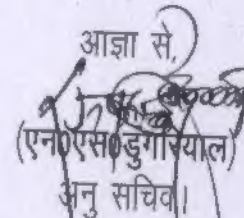 आज्ञा से,
(एन०एस०डुंगरियाल)
अनु सचिव।